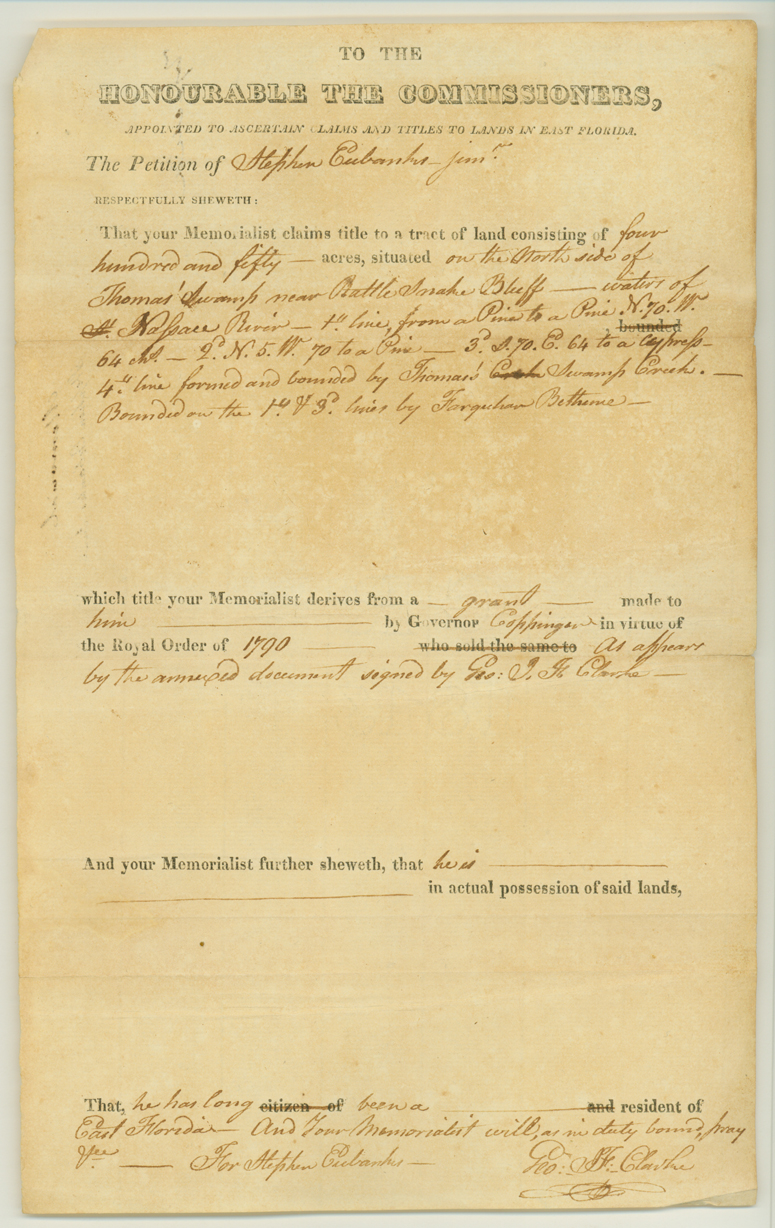 TO THE
HONOURABLE THE COMMISSIONERS,
APPOINTED TO ASCERTAIN CLAIMS AND TITLES TO LANDS IN EAST FLORIDA.
The Petition of Stephen Eubanks junr.
RESPECTFULLY SHEWETH:
That your Memorialist claims title to a tract of land consisting of four
hundred and fifty — acres, situated on the North side of
Thomas' Swamp near Rattle Snake Bluff — waters of
St. Nassau River — 1st line, from a Pine to a Pine N. 70. W. bounded
64 chs. — 2d. N. 5. W. 70 to a Pine — 3d. S. 70. E. 64 to a Cypress —
4th line formed and bounded by Thomas's Creek Swamp Creek. —
Bounded on the 1st & 3d. lines by Farquhar Bethune —
which title your Memorialist derives from a — grant — made to
him — by Governor Coppinger in virtue of
the Royal Order of 1790 — who sold the same to As appears
by the annexed document signed by Geo: J. F. Clarke —
And your Memorialist further sheweth, that he is —
— in actual possession of said lands,
That, he has long citizen of been a — and resident of
East Florida — And Your Memorialist will, as in duty bound, pray
&ce — For Stephen Eubanks —
Geo: J. F. Clarke